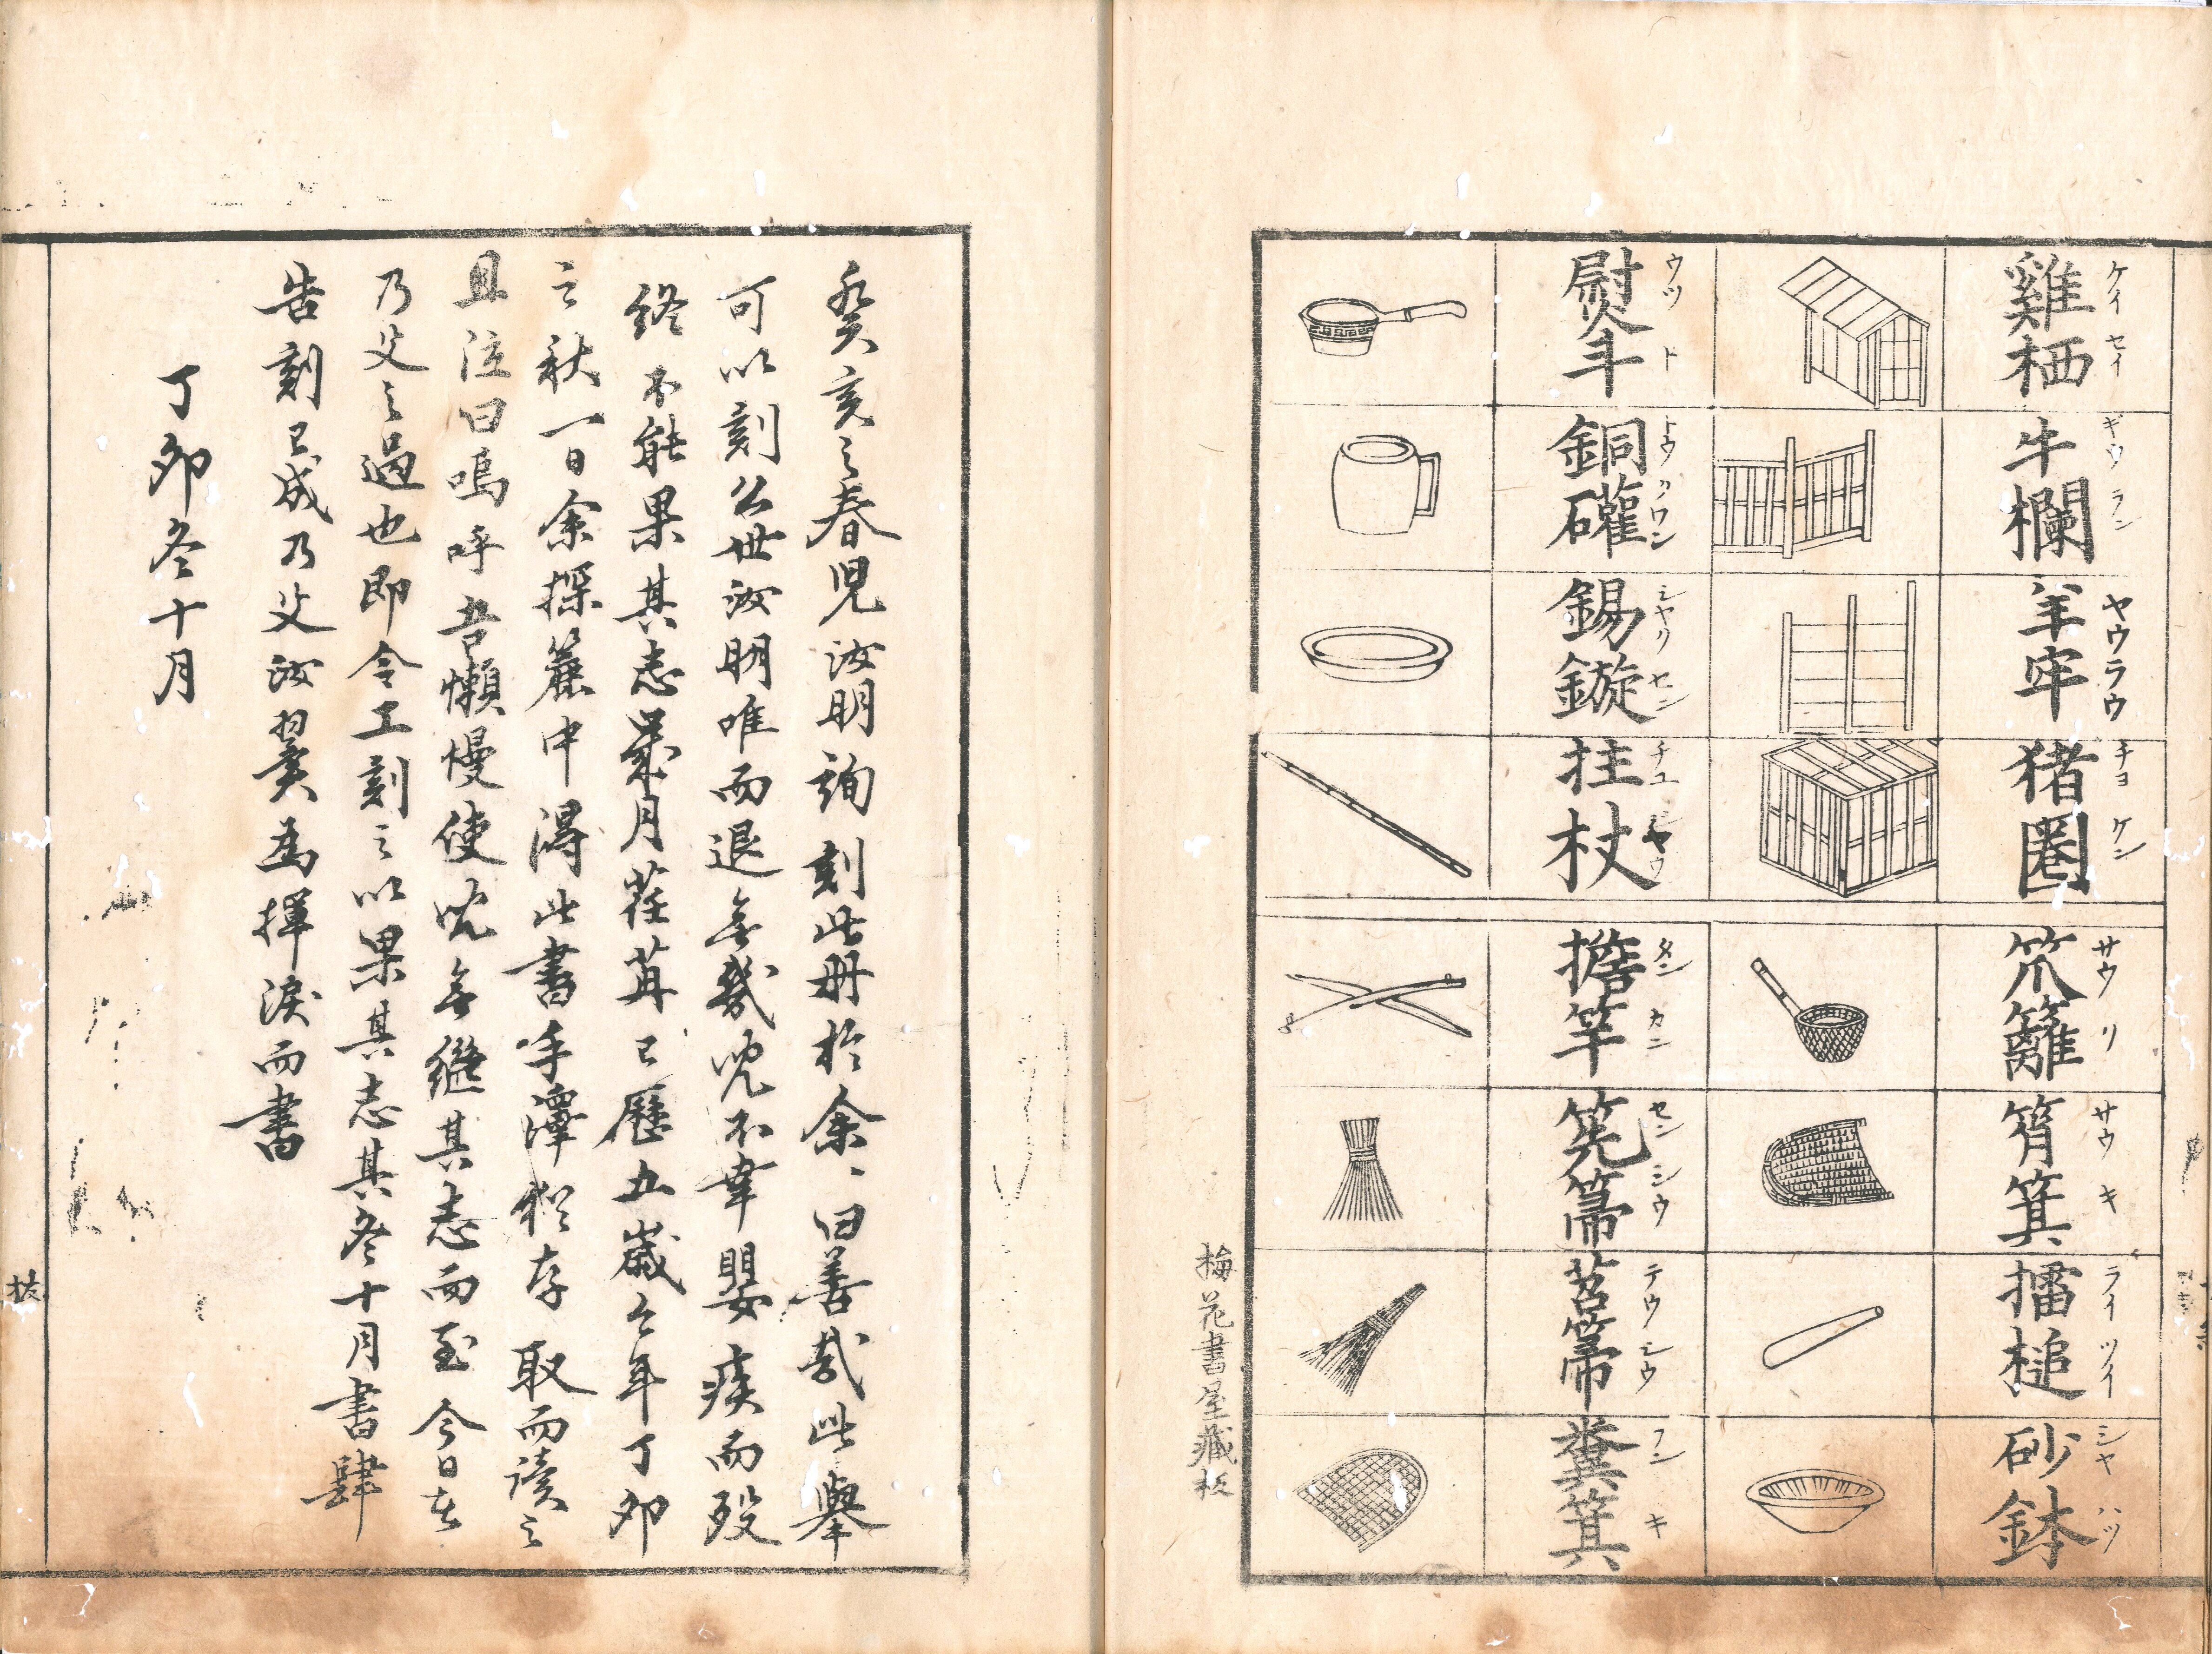 雞栖
ケイセイ
牛欄
ギウラン
羊牢
ヤウラウ
猪圈
チヨケン
笊籬
サウリ
筲箕
サウキ
擂槌
ライツイ
砂鉢
シヤハツ
熨斗
ウツト
銅礶
トウクワン
錫鏇
シヤクセン
拄杖
チユシヤウ
擔竿
タンカン
筅箒
センシウ
苕箒
テウシウ
糞箕
フンキ
梅花書屋藏板
癸亥之春児汝明詢刻此册於余〻曰善哉此擧
可以刻公世汝明唯而退無幾児不幸嬰疾而歿
終不能果其志屢月荏苒已歴五歳今年丁卯
之秋一日余探簏中得此書手澤猶存取而讀之
且泣曰嗚呼吾懶慢使児無繼其志而至今日在
乃父之過也即令工刻之以果其志其冬十月書肆
告刻已成乃父汝翼為揮淚而書
丁卯冬十月